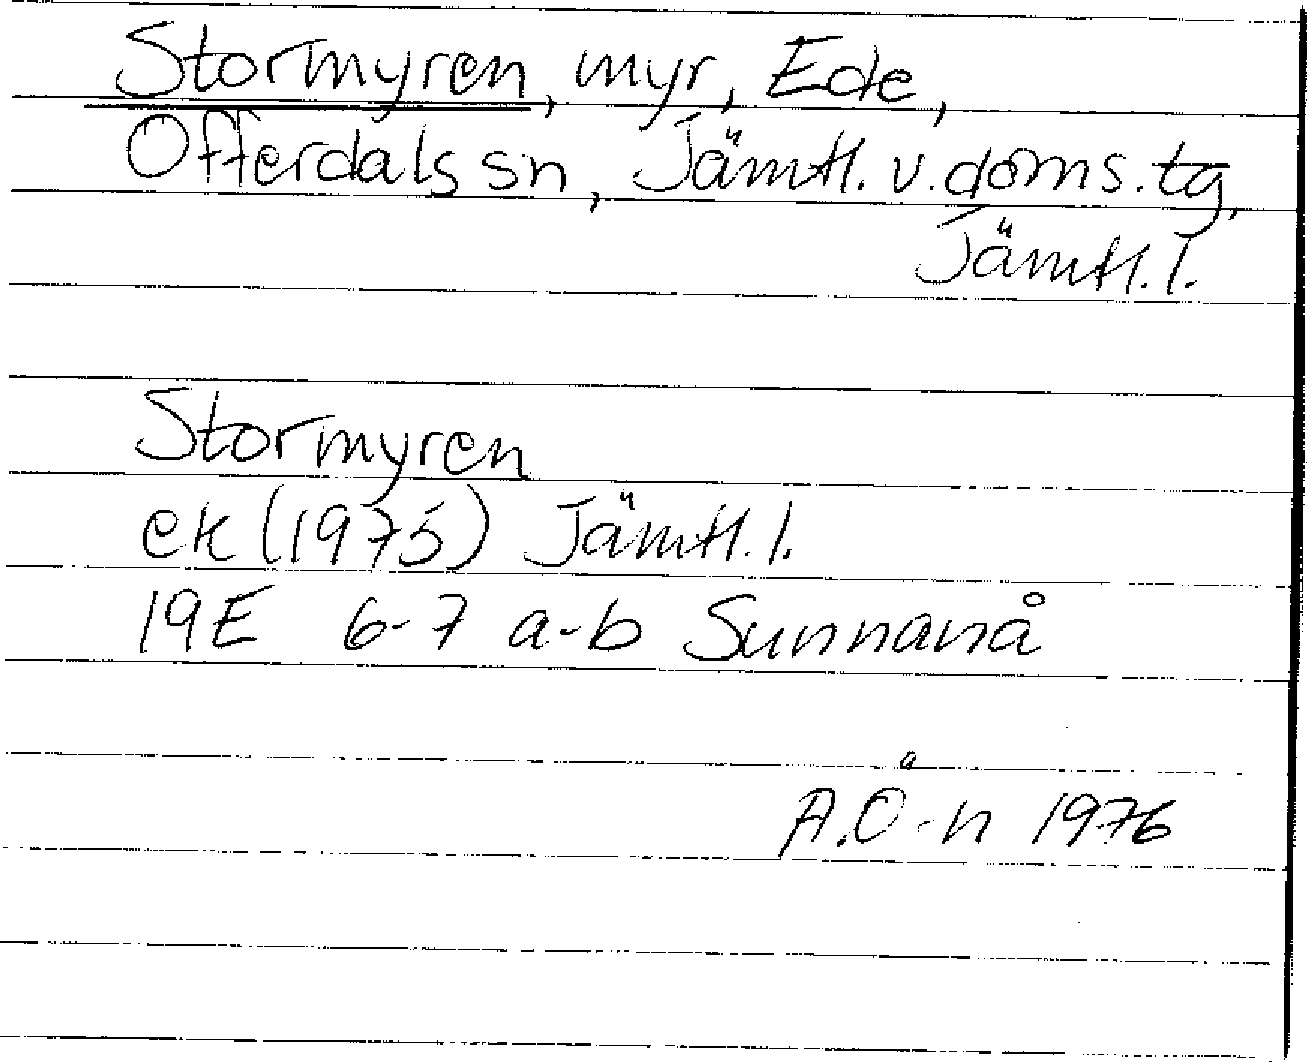 Stormyren, myr, Ede,
Offerdals sn, Jämtl. v. doms. tg,
Jämtl. l.
Stormyren
ek (1975) Jämtl. l.
19E 6-7 a-b Sunnanå
A.Ö-n 1976